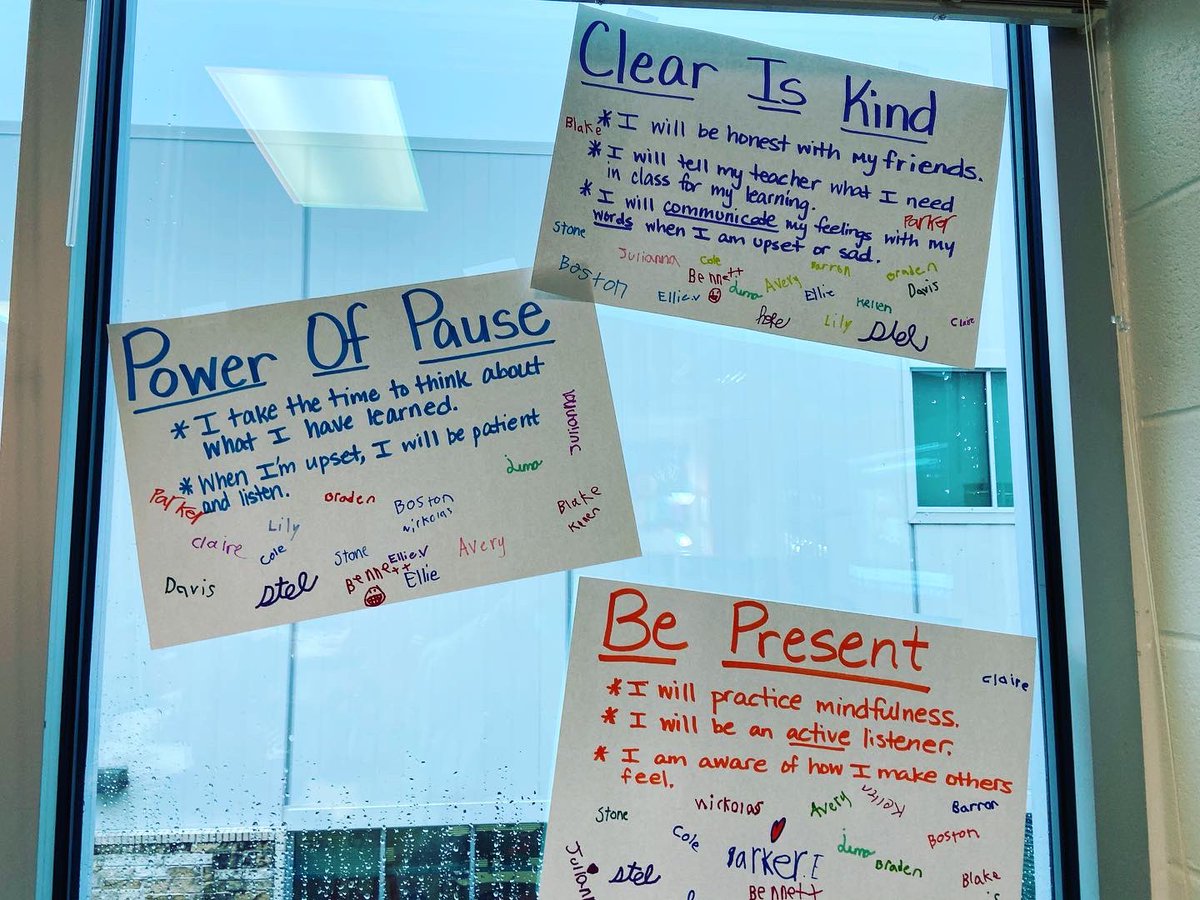 Clear Is Kind
Blake
* I will be honest with my friends.
* I will tell my teacher what I need
in class for my learning.
* I will communicate my feelings with my
words when I am upset or sad.
Parker
Stone
Julianna
Cole
Barron
Braden
Boston
Bennett
Avery
Davis
Ellie.V
Ellie
Lily
Stel
Claire
Power Of Pause
* I take the time to think about
what I have learned.
* When I'm upset, I will be patient
and listen.
Julianna
Parker
Braden
Boston
Nickolas
Blake
Lily
Claire
Cole
Stone
Ellie.V
Avery
Davis
Stel
Bennett
Ellie
Be Present
Claire
* I will practice mindfulness.
* I will be an active listener.
* I am aware of how I make others
feel.
Stone
Nickolas
Avery
Barron
Cole
Parker.I
Braden
Boston
Stel
Bennett
Blake